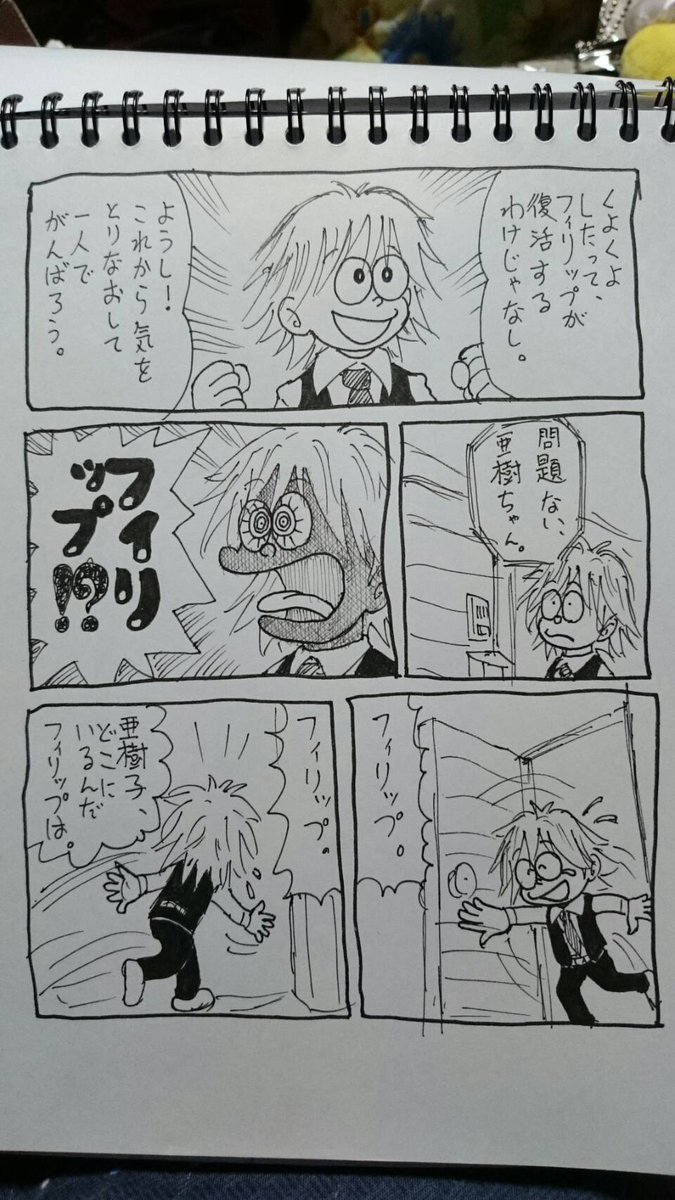 くよくよ
したって、
フィリップが
復活する
わけじゃなし。
ようし!
これから気を
とりなおして
一人で
がんばろう。
問題ない、
亜樹ちゃん。
フィリ
ップ
!?
フィリップ。
フィリップ。
亜樹子、
どこに
いるんだ
フィリップは。